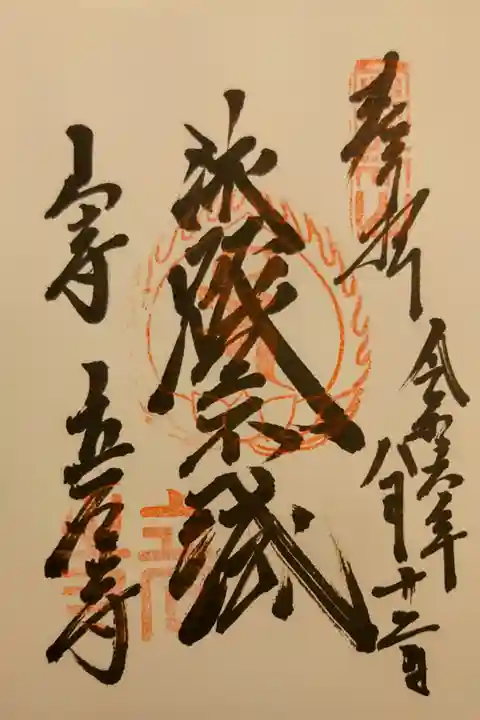 奉拝
令和六年
八月十二日
法燈不滅
山寺 立石寺